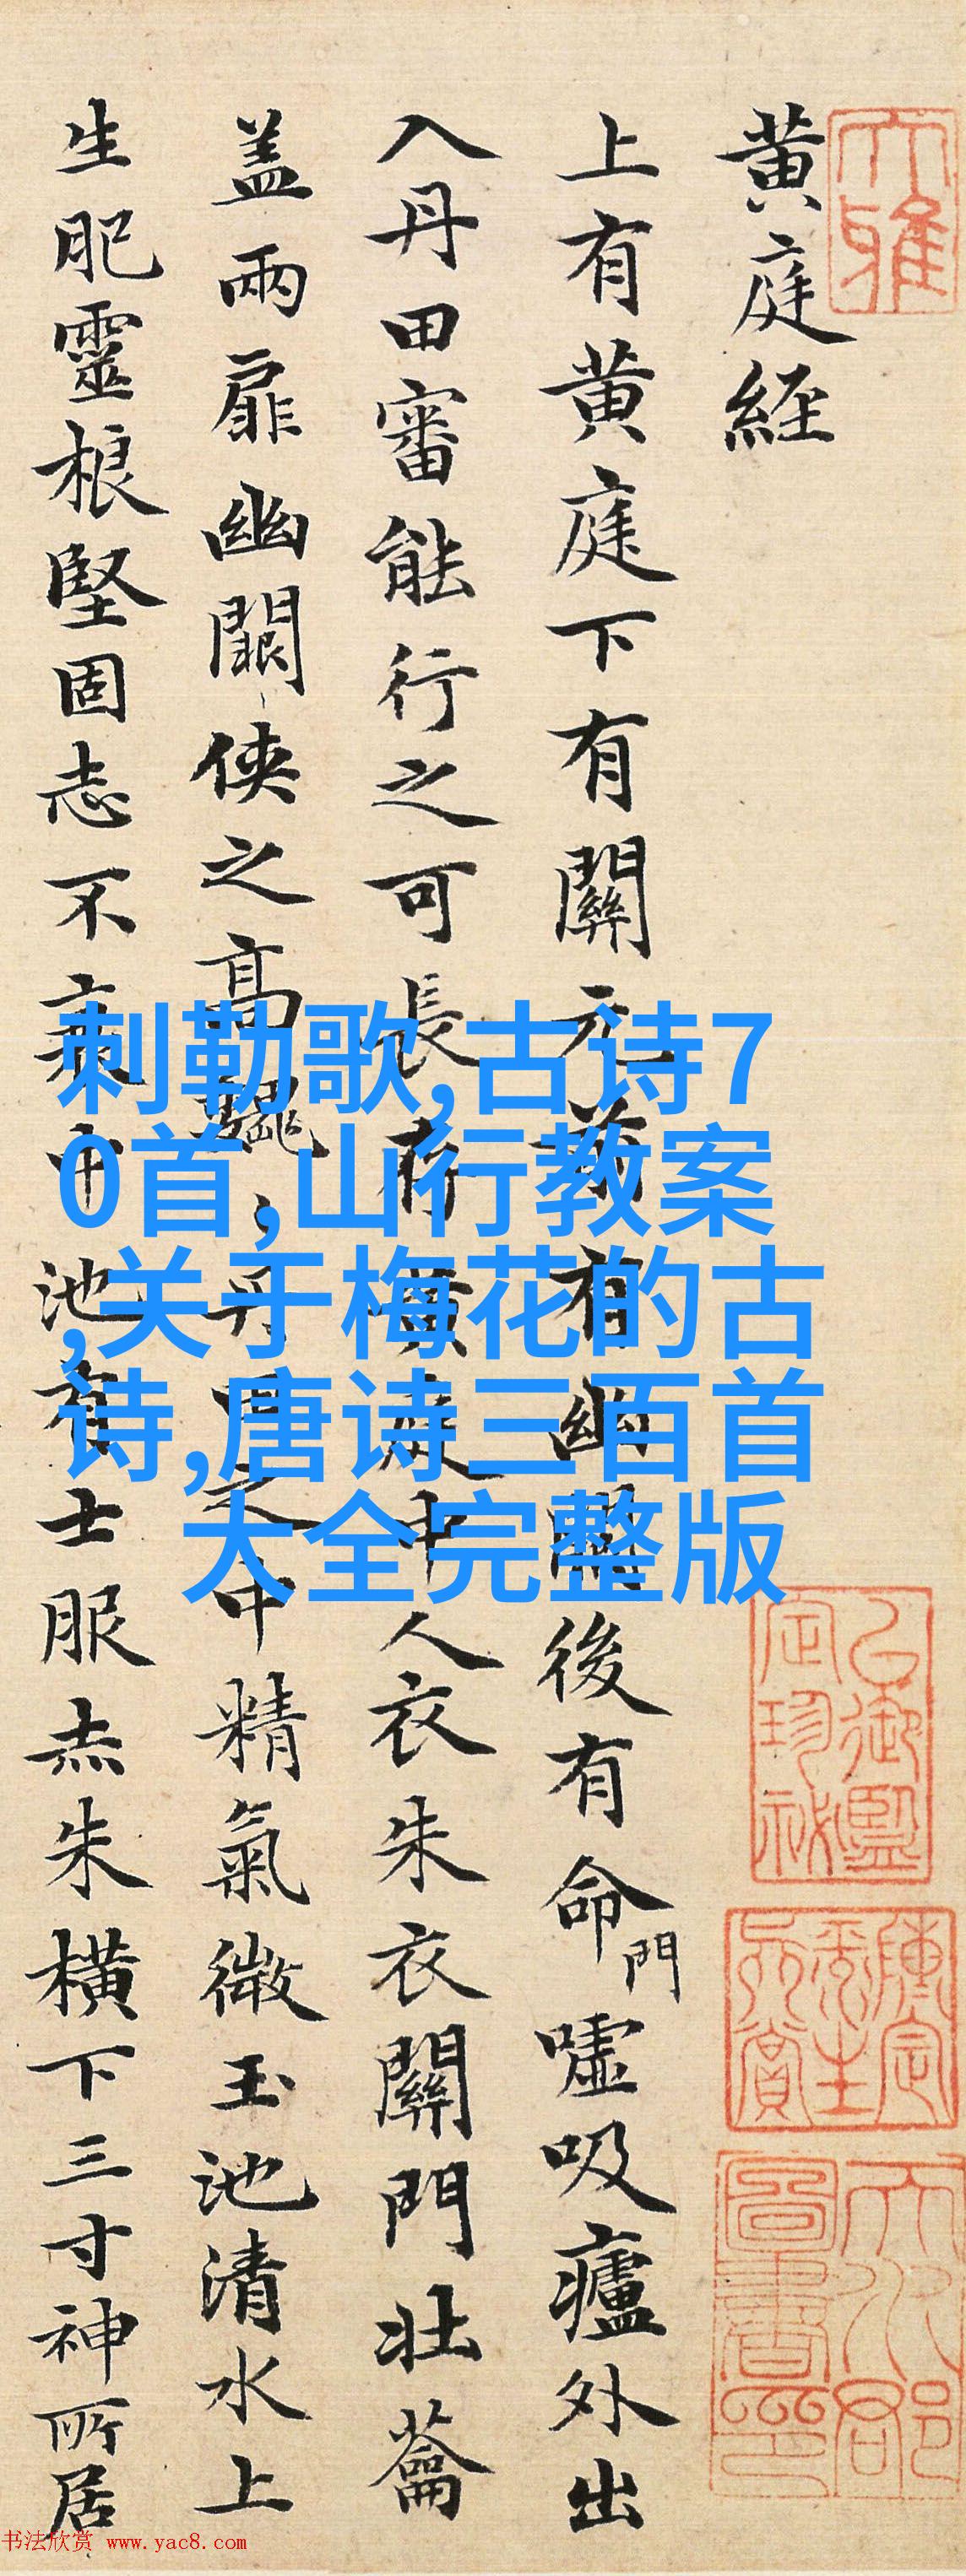 黄庭經
上有黄庭下有關元前有幽闕後有命門嘘吸廬外出
入丹田審能行之可長存黄庭中人衣朱衣關門壯蘥
蓋兩扉幽闕侠之高巍丹田之中精氣微玉池清水上
生肥靈根堅固志不衰中池有士服赤朱横下三寸神所居
刺勒歌,古诗7
0首,山行教案
,关于梅花的古
诗,唐诗三百首
大全完整版
书法欣赏 www.yac8.com